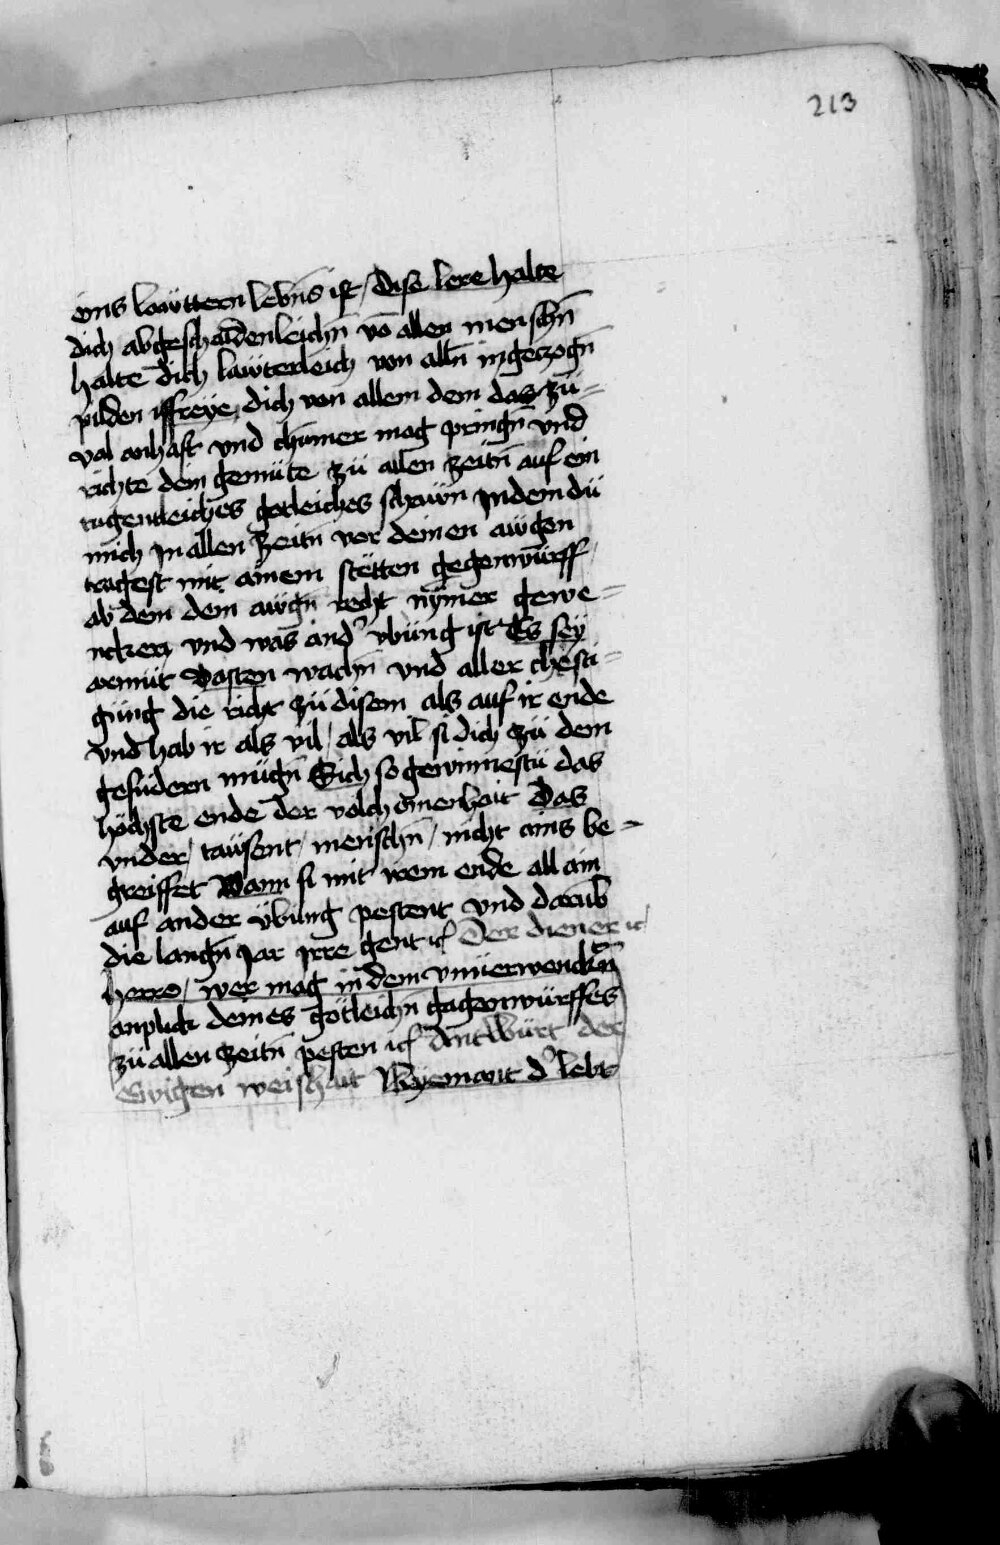 213
eins lawttern lebns ist / dise lere halte
dich abgeschaidenleichn̄ vō allen menschn̄
halte dich lawterleich von alln̄ ingeczogn̄
pilden iffreye dich von allem dem das zü=
val anhaft vnd chumer mag pringn̄ vnd
richte dein gemüte zü allen zeitn̄ auf ein
tugentleiches gotleiches schawn̄ Jn dem dü
mich Jn allen zeitn̄ vor deinen awgen
tragest mit ainem stëtten gegenwürff /
ab dem dem awgn̄ recht nÿmer gewe=
ncken vnd was and' vbüng ist Es seÿ
armüt Vasten wachn̄ vnd aller chesti=
güng die richt zü disem als auf ir ende
vnd hab ir als vil / als vil si dich zü dem
gefudern mügn̄ Sich so gewinnestü das
höchste ende der volchomenhait Das
vnder / tawsent / menschn̄ / nicht ains be=
greiffet Wann si mit irem ende all ain
auf ander übung pestent vnd darüb
die langn̄ Jar irre gent ic̄ Der diener ic̄
herre / wer mag in dem vnuerwencktn̄
anplick deines götleichn̄ gagenwürffes
zü allen zeitn̄ pesten ic̄ Antwürt der
Ewigen weishait Nÿemant d' lebt